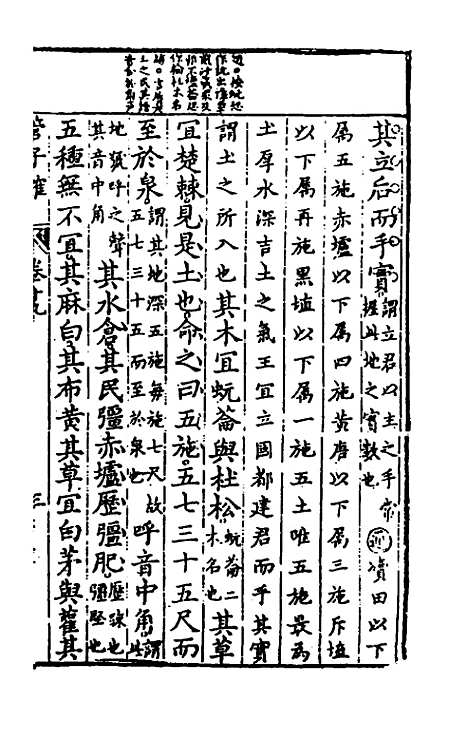 其立后而手實謂立君以主之手常握此地之實數也瀆田以下
屬五施赤壚以下屬四施黃唐以下屬三施斥埴
以下屬再施黑埴以下屬一施五土唯五施最為
土厚水深吉土之氣王宜立國都建君而乎其實
謂土之所入也其木宜蚖菕與杜松蚖菕二木名也其草
宜楚棘見是土也命之曰五施五七三十五尺而
至於泉謂其地深五施每施七尺故五七三十五而至於泉也呼音中角謂此
地號呼之聲其音中角其水倉其民彊赤壚歷彊肥歷疎也彊堅也
五種無不宜其麻白其布黃其草宜白茅與雚其
管子榷
卷十九
三